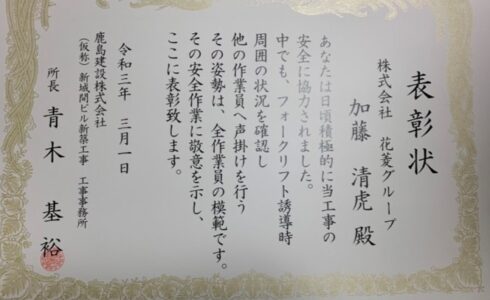 表彰状
株式会社 花菱グループ
加藤 清虎 殿
あなたは日頃積極的に当工事の
安全に協力されました。
中でも、フォークリフト誘導時
周囲の状況を確認し
他の作業員へ声掛けを行う
その姿勢は、全作業員の模範です。
その安全作業に敬意を示し、
ここに表彰致します。
令和三年 三月一日
鹿島建設株式会社
(仮称)新城関ビル新築工事 工事事務所
所長 青木 基裕